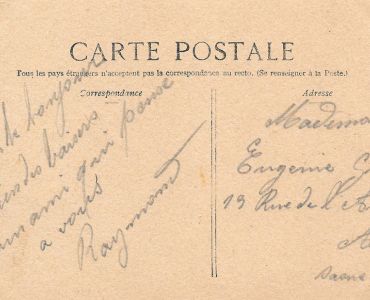 CARTE POSTALE
Tous les pays étrangers n'acceptent pas la correspondance au recto. (Se renseigner à la Poste).
Correspondance
bonjour
des baisers
ami qui pense
a vous
Raymond
Adresse
Madem
Eugenie G
19 Rue de l'A
A
Saone